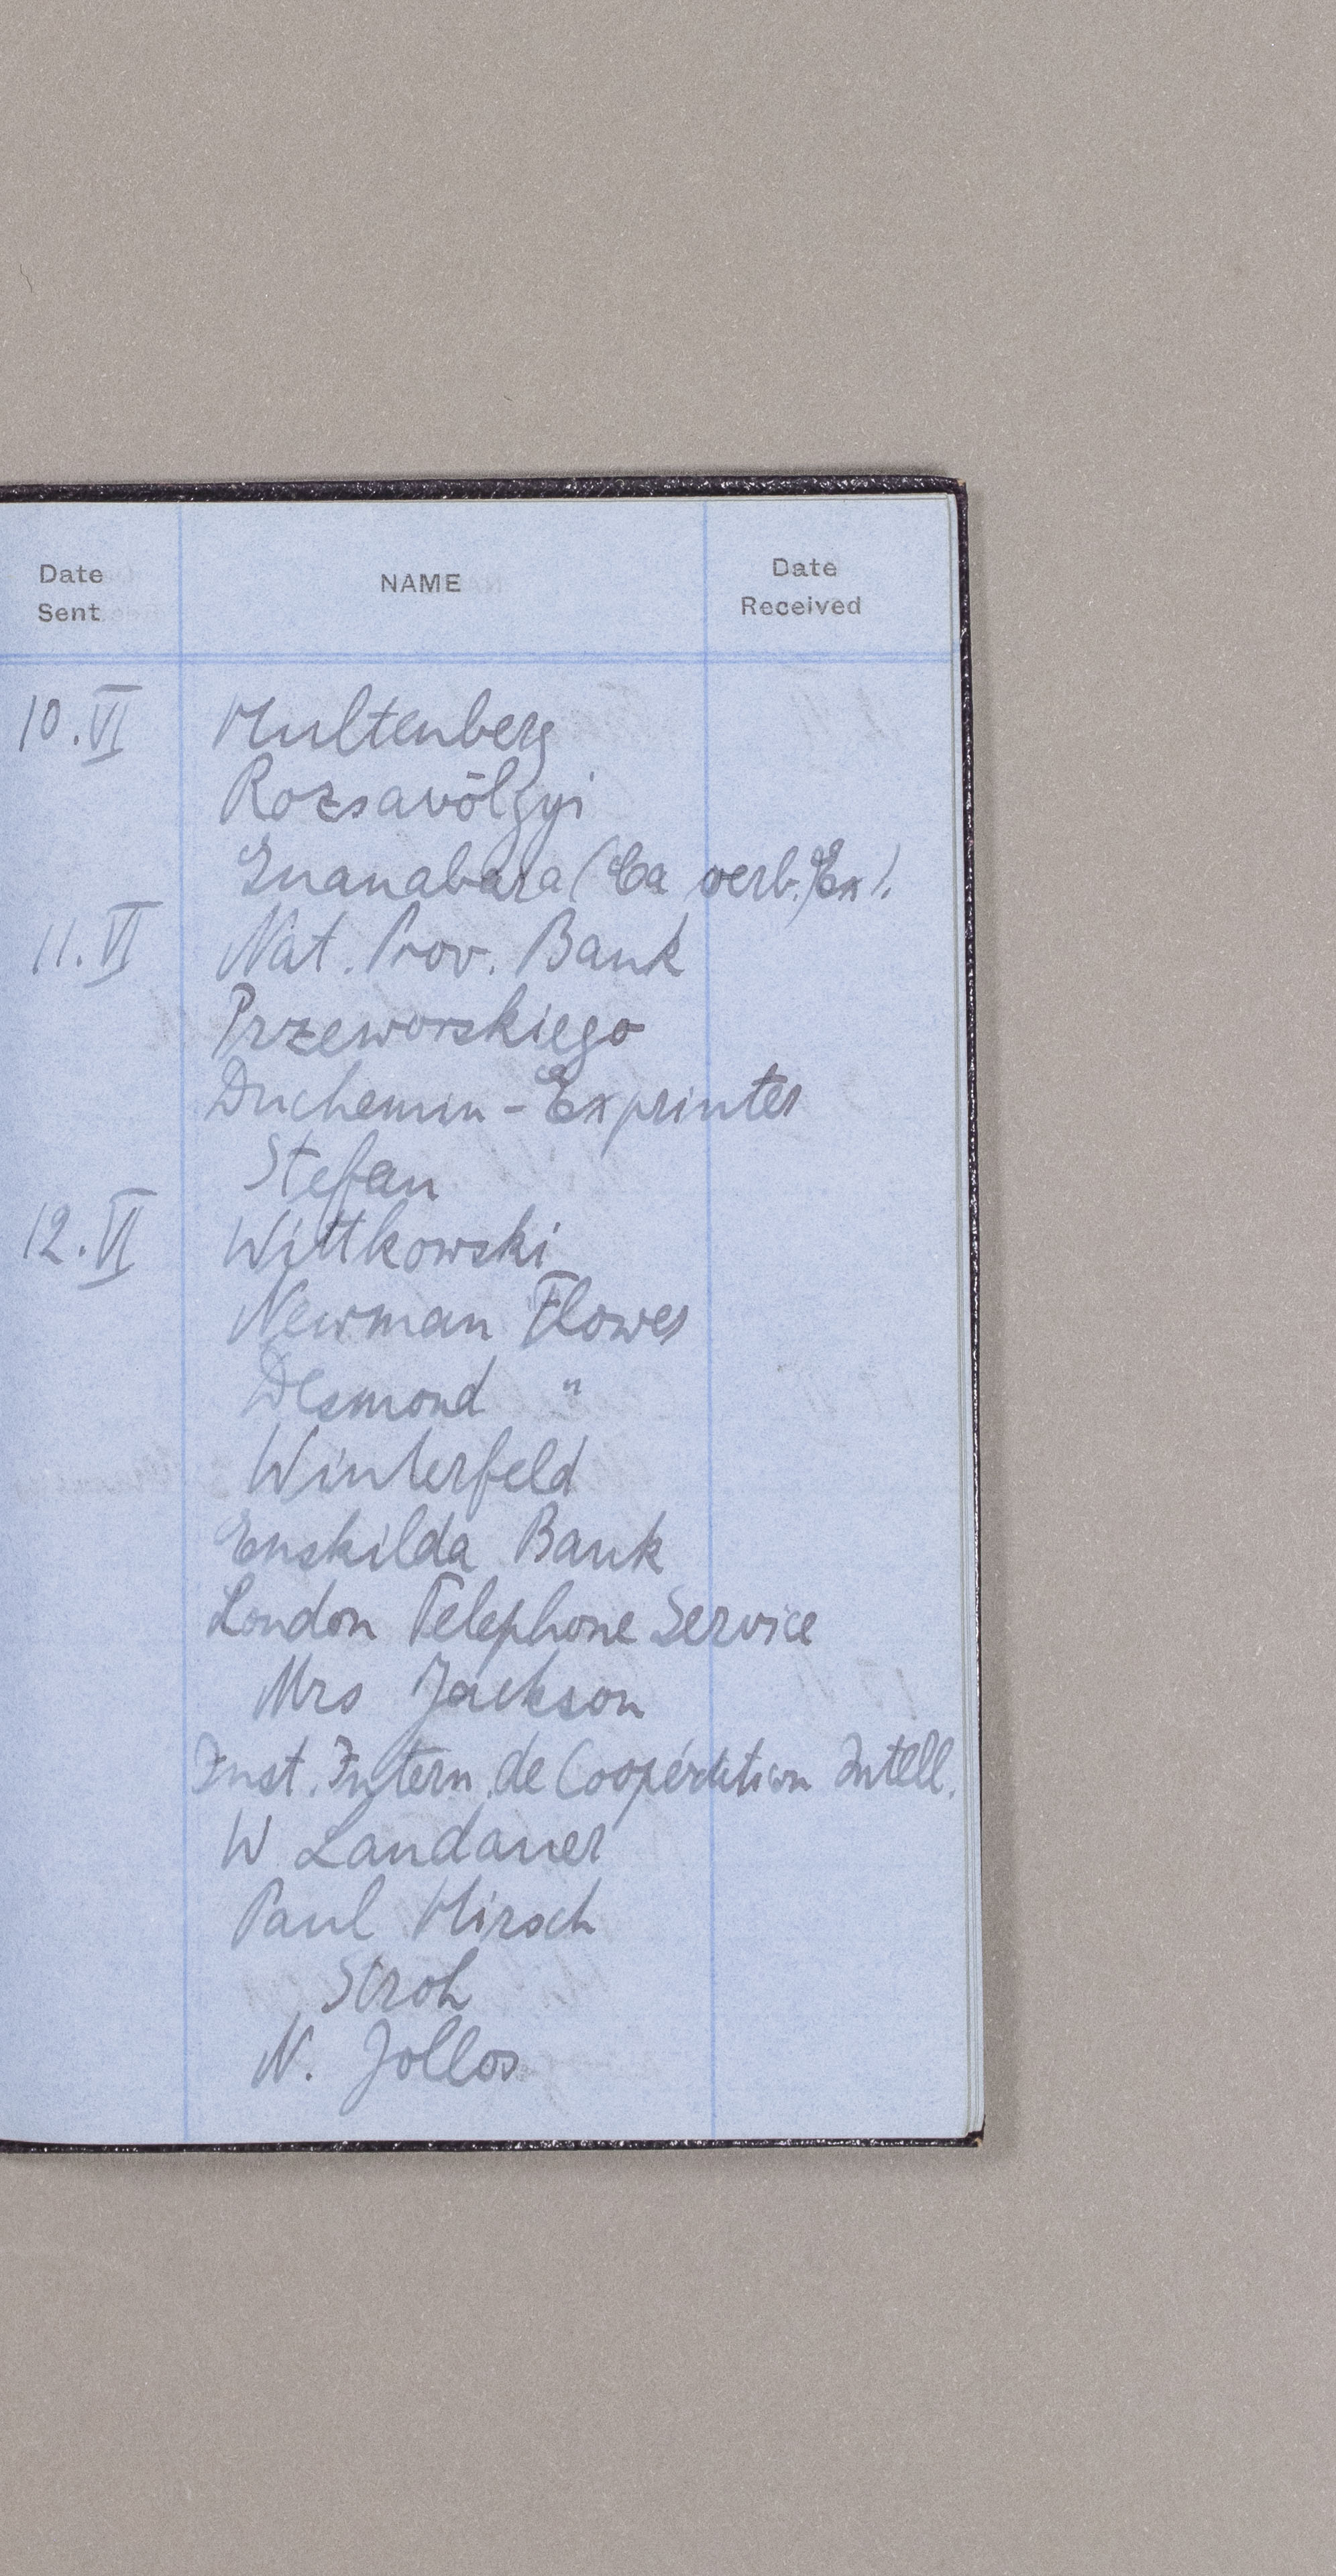 Date Sent NAME Date Received
10.VI Hultenberg
Rozsavölgyi
Guanabara (Ca verb. Ex).
11.VI Nat. Prov. Bank
Przeworskiego
Duchemin - Exprinter
Stefan
12.VI Wittkowski
Newman Flower
Desmond "
Winterfeld
Enskilda Bank
London Telephone Service
Mrs Jackson
Inst. Intern. de Coopération Intell.
W Landauer
Paul Hirsch
Stroh
N. Jollos